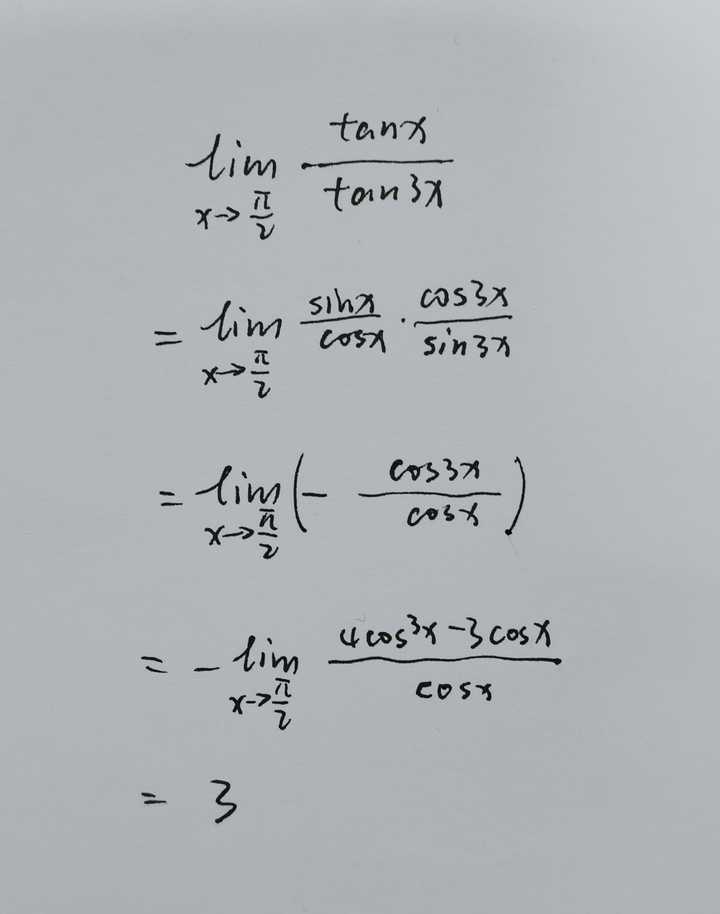 lim x→π/2 tanx / tan3x
= lim x→π/2 sinx/cosx · cos3x/sin3x
= lim x→π/2 (- cos3x/cosx)
= - lim x→π/2 (4cos³x-3cosx)/cosx
= 3